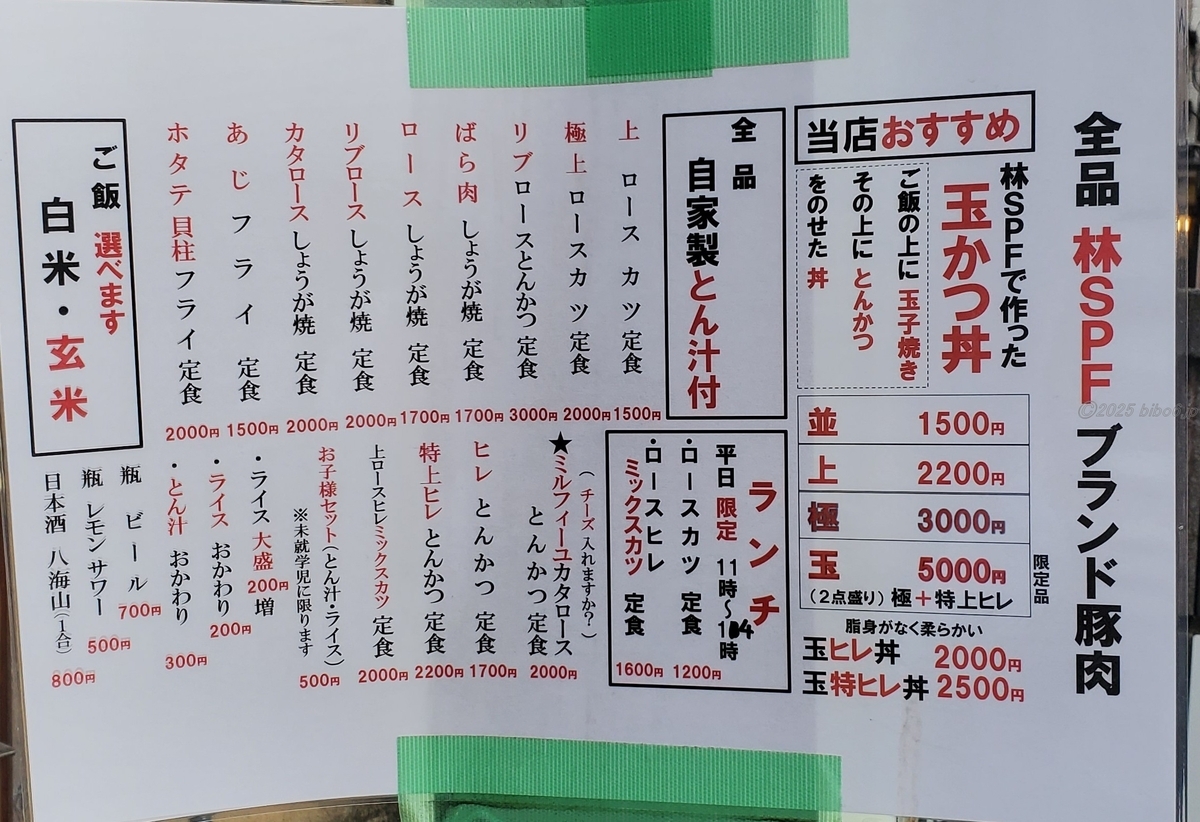 全品 林SPF ブランド豚肉
©2025 biboo
当店おすすめ
林SPFで作った
玉かつ丼
ご飯の上に 玉子焼き
その上に とんかつ
をのせた 丼
並 1500円
上 2200円
極 3000円
玉 5000円
(2点盛り) 極+特上ヒレ
限定品
脂身がなく柔らかい
玉ヒレ丼 2000円
玉特ヒレ丼 2500円
全品
自家製とん汁付
上 ロース カツ 定食 1500円
極上 ロース カツ 定食 2000円
リブロースとんかつ 定食 3000円
ばら肉 しょうが焼 定食 1700円
ロース しょうが焼 定食 1700円
リブロース しょうが焼 定食 2000円
カタロース しょうが焼 定食 2000円
あじ フライ 定食 1500円
ホタテ貝柱フライ 定食 2000円
ご飯 選べます
白米・玄米
ランチ
平日 限定 11時~14時
・ロースカツ 定食 1200円
・ロースヒレ
ミックスカツ 定食 1600円
(チーズ入れますか?)
★ミルフィーユカタロース
とんかつ定食 2000円
ヒレ とんかつ 定食 1700円
特上ヒレ とんかつ 定食 2200円
上ロースヒレミックスカツ 定食 2000円
お子様セット(とん汁・ライス) 500円
※未就学児に限ります
・ライス 大盛 200円 増
・ライス おかわり 200円
・とん汁 おかわり 300円
瓶 ビール 700円
瓶 レモンサワー 500円
日本酒 八海山(1合) 800円